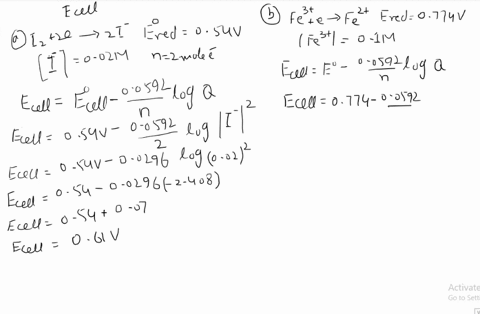 Ecell
(a) I₂+2e → 2I⁻ E⁰red = 0.54V
[I⁻] = 0.02M n=2mole é
Ecell = E⁰cell - 0.0592/n log Q
Ecell = 0.54V - 0.0592/2 log |I⁻|²
Ecell = 0.54V - 0.0296 log(0.02)²
Ecell = 0.54 - 0.0296(-2.408)
Ecell = 0.54 + 0.07
Ecell = 0.61 V
(b) Fe³⁺+e → Fe²⁺ Ered = 0.774V
|Fe³⁺| = 0.1M
Ecell = E⁰ - 0.0592/n log Q
Ecell = 0.774 - 0.0592
Activate
Go to Setti